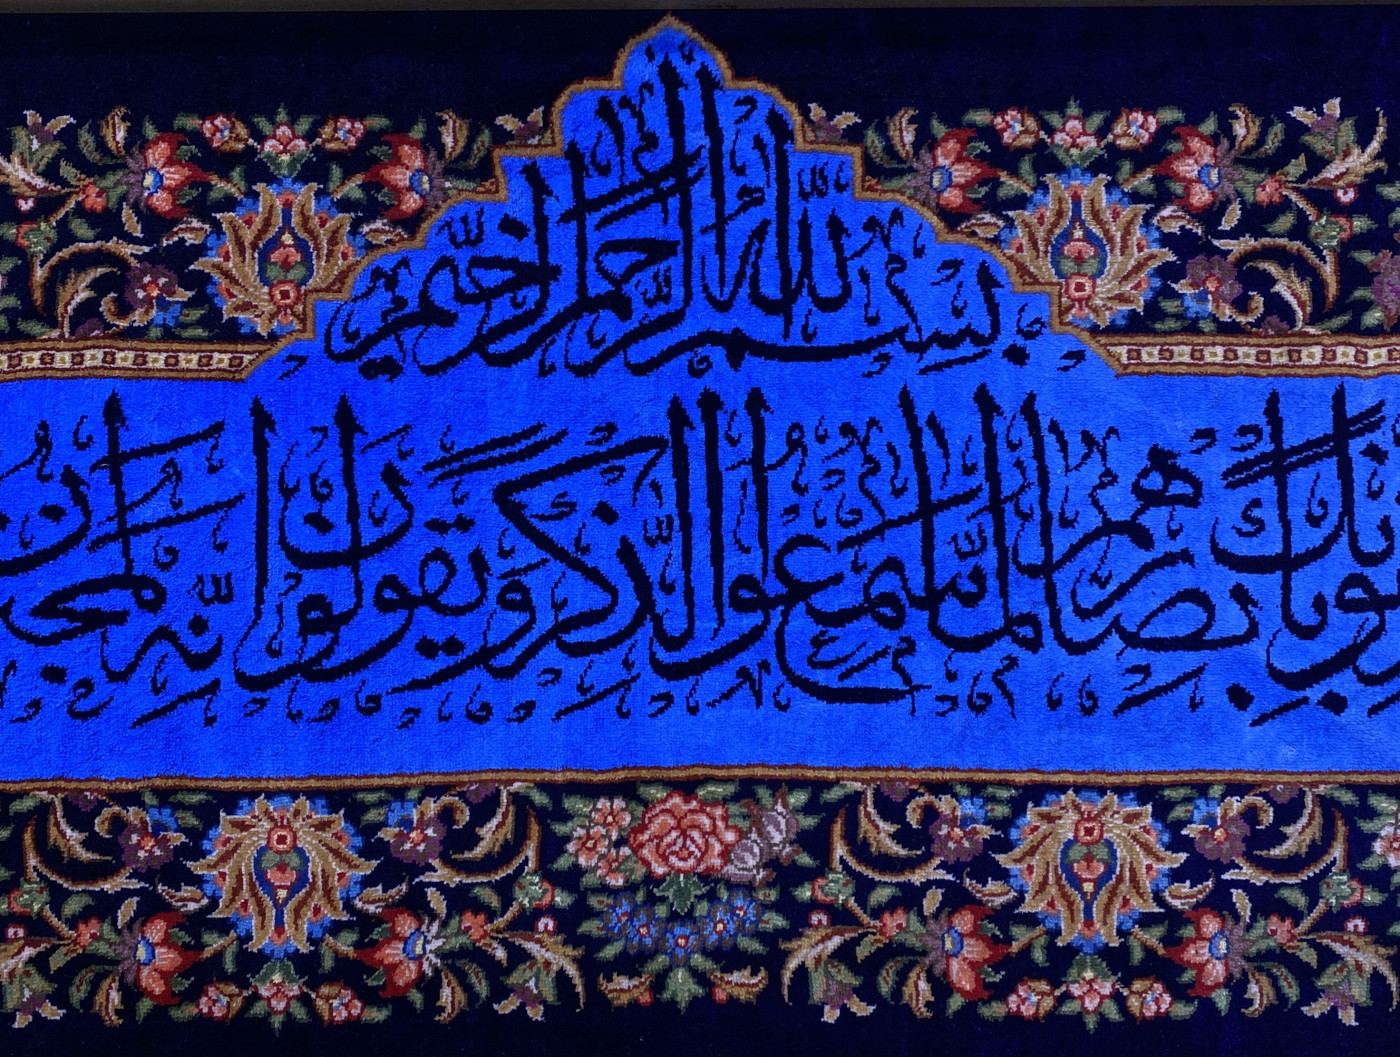 بسم الله الرحمن الرحيم
بأبصارهم لما سمعوا الذكر ويقولون إنه لمجنون